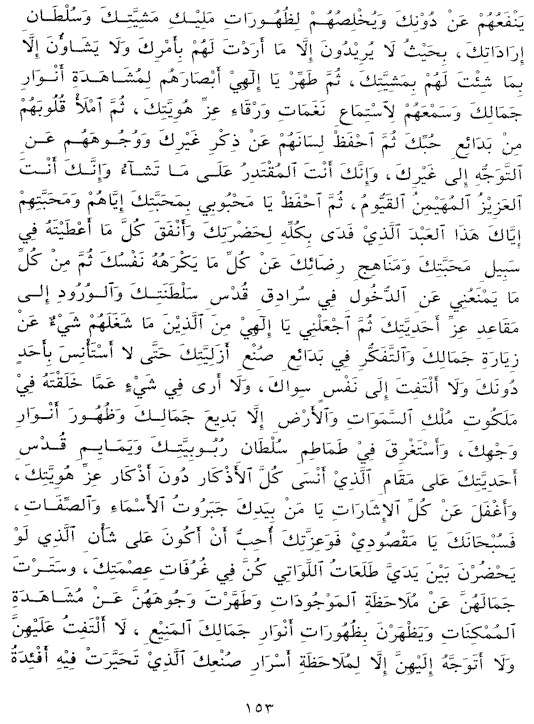 يَنْفَعُهُمْ عَنْ دُوْنِكَ وَيُخْلِصُهُمْ لِظُهُورَاتِ مَلِيْكِ مَشِيَّتِكَ وَسُلْطَانِ
إِرَادَاتِكَ، بِحَيْثُ لَا يُرِيْدُونَ إِلَّا مَا أَرَدْتَ لَهُمْ بِأَمْرِكَ وَلَا يَشَاؤُنَ إِلَّا
بِمَا شِئْتَ لَهُمْ بِمَشِيَّتِكَ، ثُمَّ طَهِّرْ يَا إِلَهِيْ أَبْصَارَهُم لِمُشَاهَدَةِ أَنْوَارِ
جَمَالِكَ وَسَمْعَهُمْ لِٱسْتِمَاعِ نَغَمَاتِ وَرْقَاءِ عِزِّ هُوِيَّتِكَ، ثُمَّ ٱمْلَأْ قُلُوبَهُمْ
مِنْ بَدَائِعِ حُبِّكَ ثُمَّ ٱحْفَظْ لِسَانَهُمْ عَنْ ذِكْرِ غَيْرِكَ وَوُجُوهَهُم عَنِ
ٱلتَّوَجُّهِ إِلى غَيْرِكَ، وَإِنَّكَ أَنْتَ المُقْتَدِرُ عَلَى مَا تَشآءُ وَإِنَّكَ أَنْتَ
العَزِيْزُ المُهَيْمِنُ القَيُّومُ، ثُمَّ ٱحْفَظْ يَا مَحْبُوبِي بِمَحَبَّتِكَ إِيَّاهُمْ وَمَحَبَّتِهِمْ
إِيَّاكَ هَذَا العَبْدَ الَّذِيْ فَدَى بِكُلِّهِ لِحَضْرَتِكَ وَأَنْفَقَ كُلَّ مَا أَعْطَيْتَهُ فِي
سَبِيلِ مَحَبَّتِكَ وَمَنَاهِجِ رِضَائِكَ عَنْ كُلِّ مَا يَكْرَهُهُ نَفْسُكَ ثُمَّ مِنْ كُلِّ
مَا يَمْنَعُنِي عَنِ ٱلدُّخُولِ فِي سُرَادِقِ قُدْسِ سَلْطَنَتِكَ وَٱلوُرُودِ إِلى
مَقَاعِدِ عِزِّ أَحَدِيَّتِكَ ثُمَّ ٱجْعَلْنِي يَا إِلَهِيْ مِنَ ٱلَّذِيْنَ مَا شَغَلَهُمْ شَيْءٌ عَنْ
زِيَارَةِ جَمَالِكَ وَٱلتَّفَكُّرِ فِي بَدَائِعِ صُنْعِ أَزَلِيَّتِكَ حَتَّى لَا أَسْتَأْنِسَ بِأَحَدٍ
دُونَكَ وَلَا أَلْتَفِتَ إِلَى نَفْسٍ سِواكَ، وَلَا أَرى فِي شَيْءٍ عَمَّا خَلَقْتَهُ فِيْ
مَلَكُوتِ مُلْكِ السَّمَوَاتِ وَالأَرْضِ إِلَّا بَدِيعَ جَمَالِكَ وَظُهُورَ أَنْوَارِ
وَجْهِكَ، وَأَسْتَغْرِقَ فِيْ طَمَاطِمِ سُلْطَانِ رُبُوبِيَّتِكَ وَيَمَايِمِ قُدْسِ
أَحَدِيَّتِكَ عَلى مَقَامِ ٱلَّذِيْ أَنْسَى كُلَّ الأَذْكَارِ دُونَ أَذْكَارِ عِزِّ هُوِيَّتِكَ،
وَأَغْفَلَ عَنْ كُلِّ الإِشَارَاتِ يَا مَنْ بِيَدِكَ جَبَرُوتُ الأَسْمَاءِ وَالصِّفَاتِ،
فَسُبْحَانَكَ يَا مَقْصُودِيْ فَوَعِزَّتِكَ أُحِبُّ أَنْ أَكُونَ عَلى شَأْنِ الَّذِي لَوْ
يَحْضُرْنَ بَيْنَ يَدَيَّ طَلَعَاتُ اللَّوَاتِي كُنَّ فِي غُرُفَاتِ عِصْمَتِكَ، وَسَتَرْتَ
جَمَالَهُنَّ عَنْ مُلَاحَظَةِ المَوْجُودَاتِ وَطَهَّرْتَ وُجُوهَهُنَّ عَنْ مُشَاهَدَةِ
المُمْكِنَاتِ وَيَظْهَرْنَ بِظُهُورَاتِ أَنْوَارِ جَمَالِكَ المَنِيْعِ، لَا أَلْتَفِتُ عَلَيْهِنَّ
وَلَا أَتَوَجَّهُ إِلَيْهِنَّ إِلَّا لِمُلَاحَظَةِ أَسْرَارِ صُنْعِكَ ٱلَّذِيْ تَحَيَّرَتْ فِيْهِ أَفْئِدَةُ
١٥٣